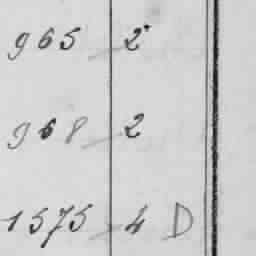 965 2
968 2
1575 4 D